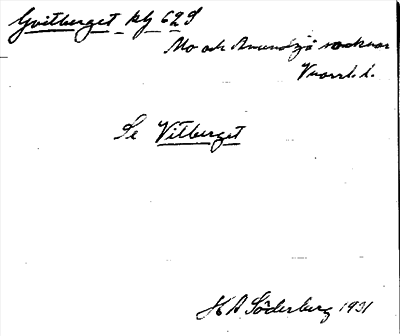 Gvitberget kg 62 S
Mo och Anundsjö socknar
Se Vitberget
H A Söderberg 1931